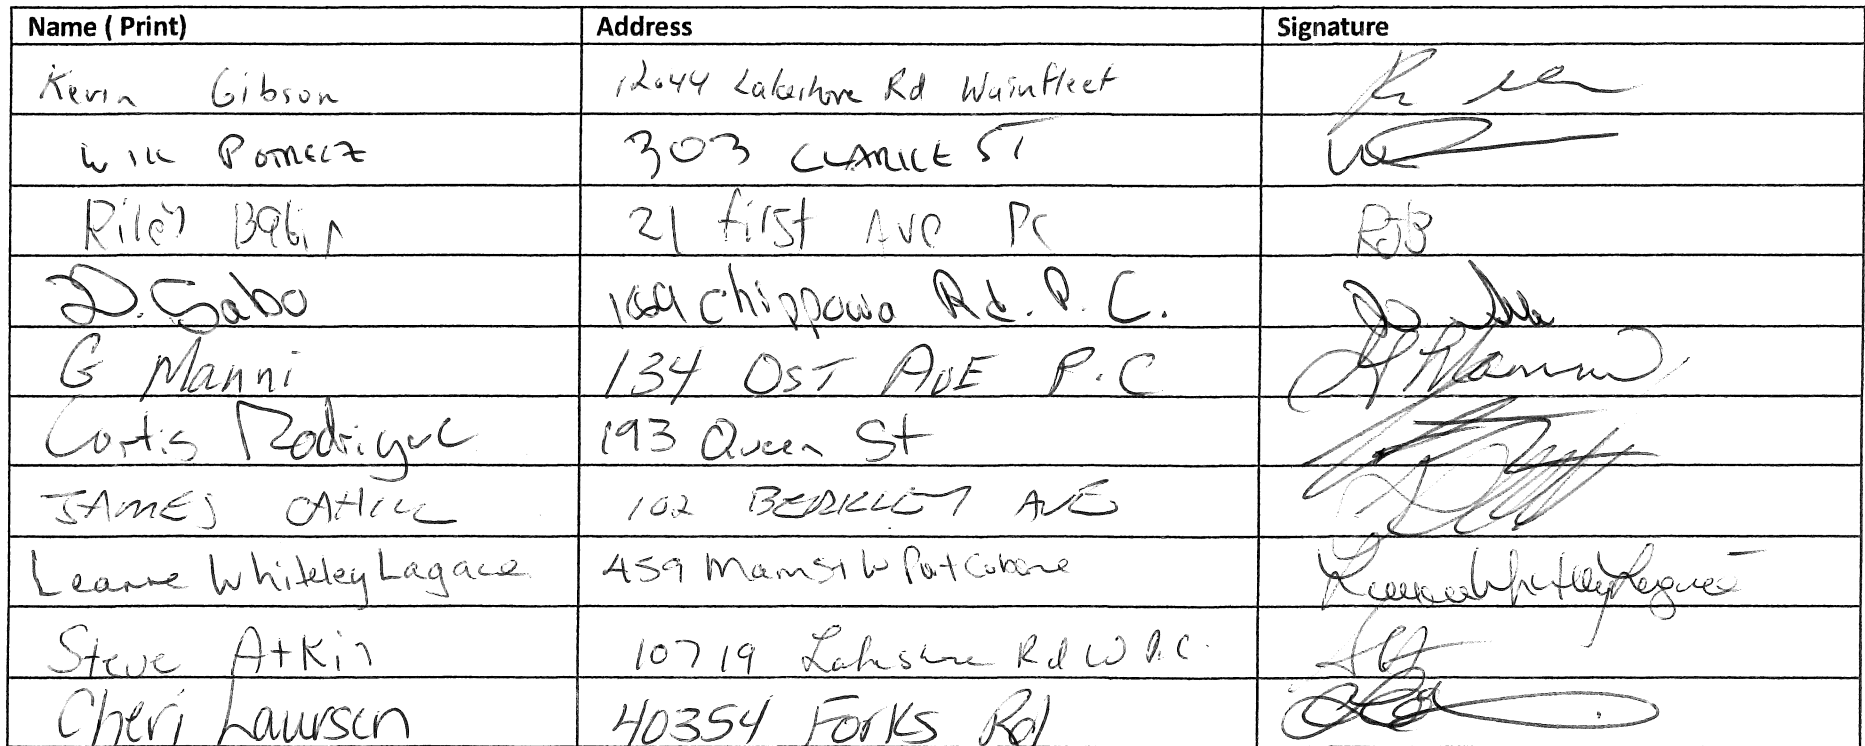 Name ( Print) Address Signature
Kevin Gibson 12044 Lakeshore Rd Wainfleet
303 CLARKE ST
Riley 21 first Ave PC RJB
D. Sabo 169 Chippawa Rd. P. C.
G Manni 134 OST AVE P.C G Manni
Curtis Rodrigue 193 Queen St
JAMES CAHILL 102 BERKLEY AVE
Leanne Whiteley Lagace 459 Main St W Port Colborne Leanne Whiteley Lagace
Steve Atkin 10719 Lakeshore Rd W P.C.
Cheri Laursen 40354 Forks Rd